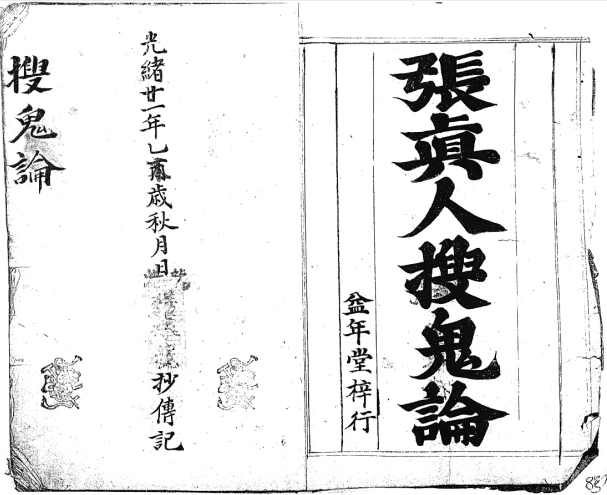 張眞人搜鬼論
益年堂梓行
光緒廿一年乙酉歲秋月日
抄傳記
搜鬼論